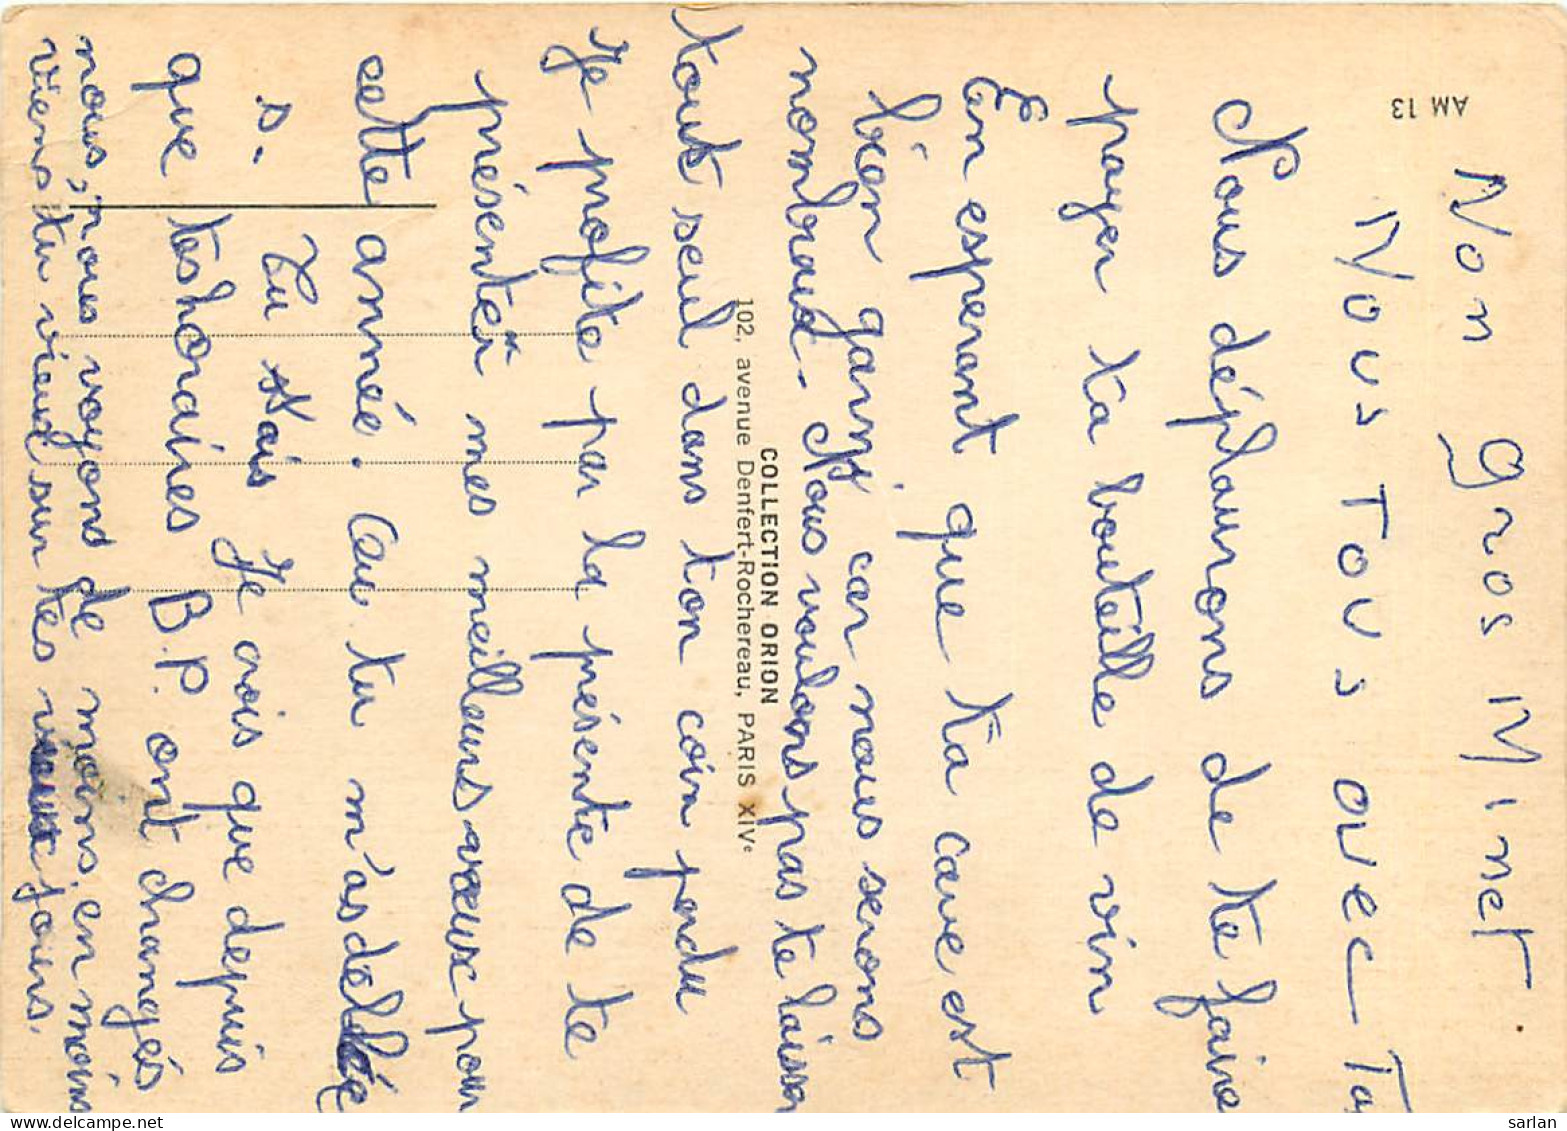 Non gros Minet.
Nous Tous avec Ta
Nous déplaurons de te faire
payer ta bouteille de vin
En esperent que ta cave est
bien garny car nous serons
nombraux. Nous voulons pas te laisser
tout seul dans ton coin perdu
Je profite par la présente de te
présenter mes meilleurs vœux pour
cette année. Cu tu m'as dellée
s. Tu sais Je crois que depuis
que tes horaires B.P. ont changés
nous, nous voyons de moins en moins
viens tu vieux sur tes vieux jours.
COLLECTION ORION
102, avenue Denfert-Rochereau, PARIS XIVe
AM 13
sarlan